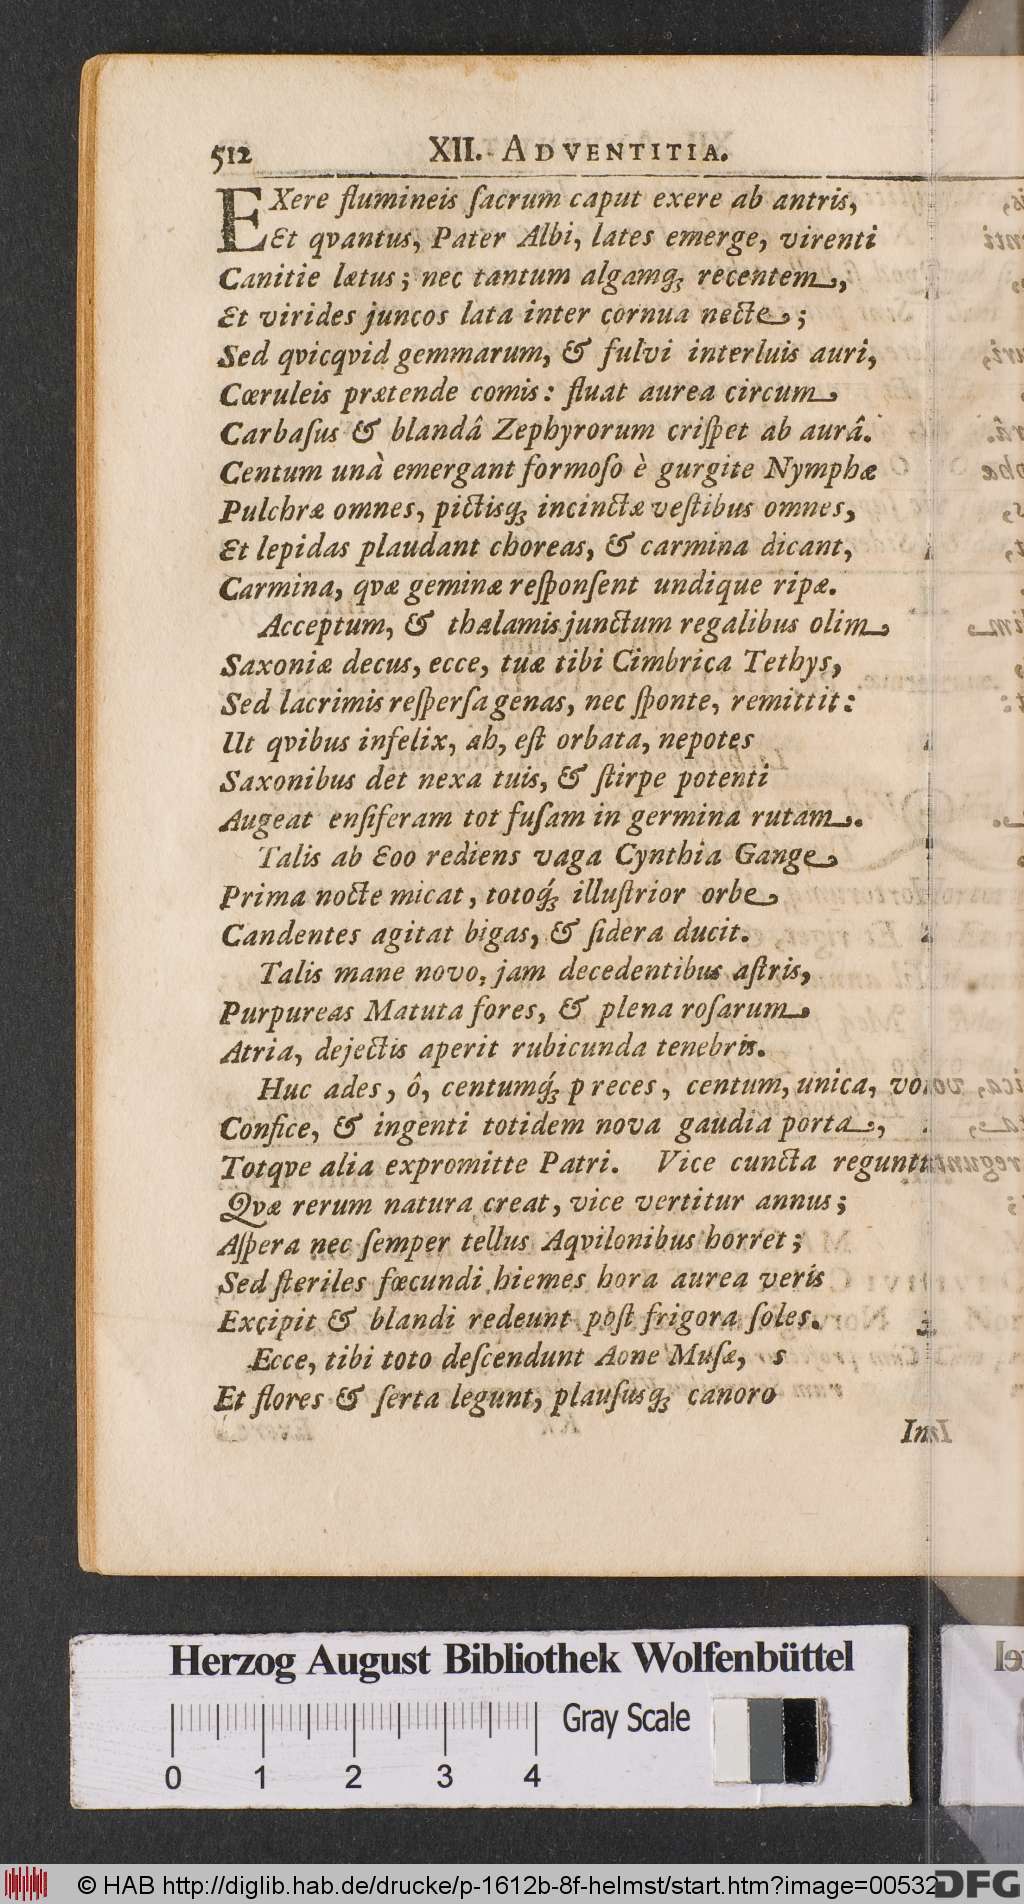 512 XII. ADVENTITIA.
EXere flumineis ſacrum caput exere ab antris,
Et qvantus, Pater Albi, lates emerge, virenti
Canitie lætus; nec tantum algamq; recentem,
Et virides juncos lata inter cornua necte;
Sed qvicqvid gemmarum, & fulvi interluis auri,
Cœruleis prætende comis: fluat aurea circum
Carbaſus & blandâ Zephyrorum criſpet ab aurâ.
Centum unà emergant formoſo è gurgite Nymphæ
Pulchræ omnes, pictisq; incinctæ veſtibus omnes,
Et lepidas plaudant choreas, & carmina dicant,
Carmina, qvæ geminæ reſponſent undique ripæ.
Acceptum, & thalamis junctum regalibus olim
Saxoniæ decus, ecce, tuæ tibi Cimbrica Tethys,
Sed lacrimis reſperſa genas, nec ſponte, remittit:
Ut qvibus infelix, ah, eſt orbata, nepotes
Saxonibus det nexa tuis, & ſtirpe potenti
Augeat enſiferam tot fuſam in germina rutam.
Talis ab Eoo rediens vaga Cynthia Gange
Prima nocte micat, totoq́; illuſtrior orbe
Candentes agitat bigas, & ſidera ducit.
Talis mane novo, jam decedentibus aſtris,
Purpureas Matuta fores, & plena roſarum
Atria, dejectis aperit rubicunda tenebris.
Huc ades, ô, centumq́; preces, centum, unica,
Confice, & ingenti totidem nova gaudia porta,
Totqve alia expromitte Patri. Vice cuncta
Qvæ rerum natura creat, vice vertitur annus;
Aſpera nec ſemper tellus Aqvilonibus horret;
Sed ſteriles fœcundi hiemes hora aurea veris
Excipit & blandi redeunt poſt frigora ſoles.
Ecce, tibi toto deſcendunt Aone Muſæ, s
Et flores & ſerta legunt, plauſusq; canoro
Herzog August Bibliothek Wolfenbüttel
Gray Scale
0 1 2 3 4
© HAB http://diglib.hab.de/drucke/p-1612b-8f-helmst/start.htm?image=00532
DFG